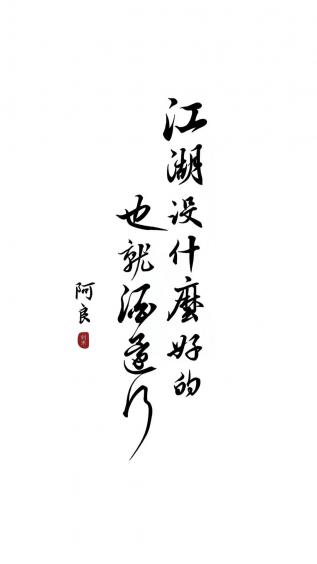 江湖没什麼好的
也就酒還行
阿良